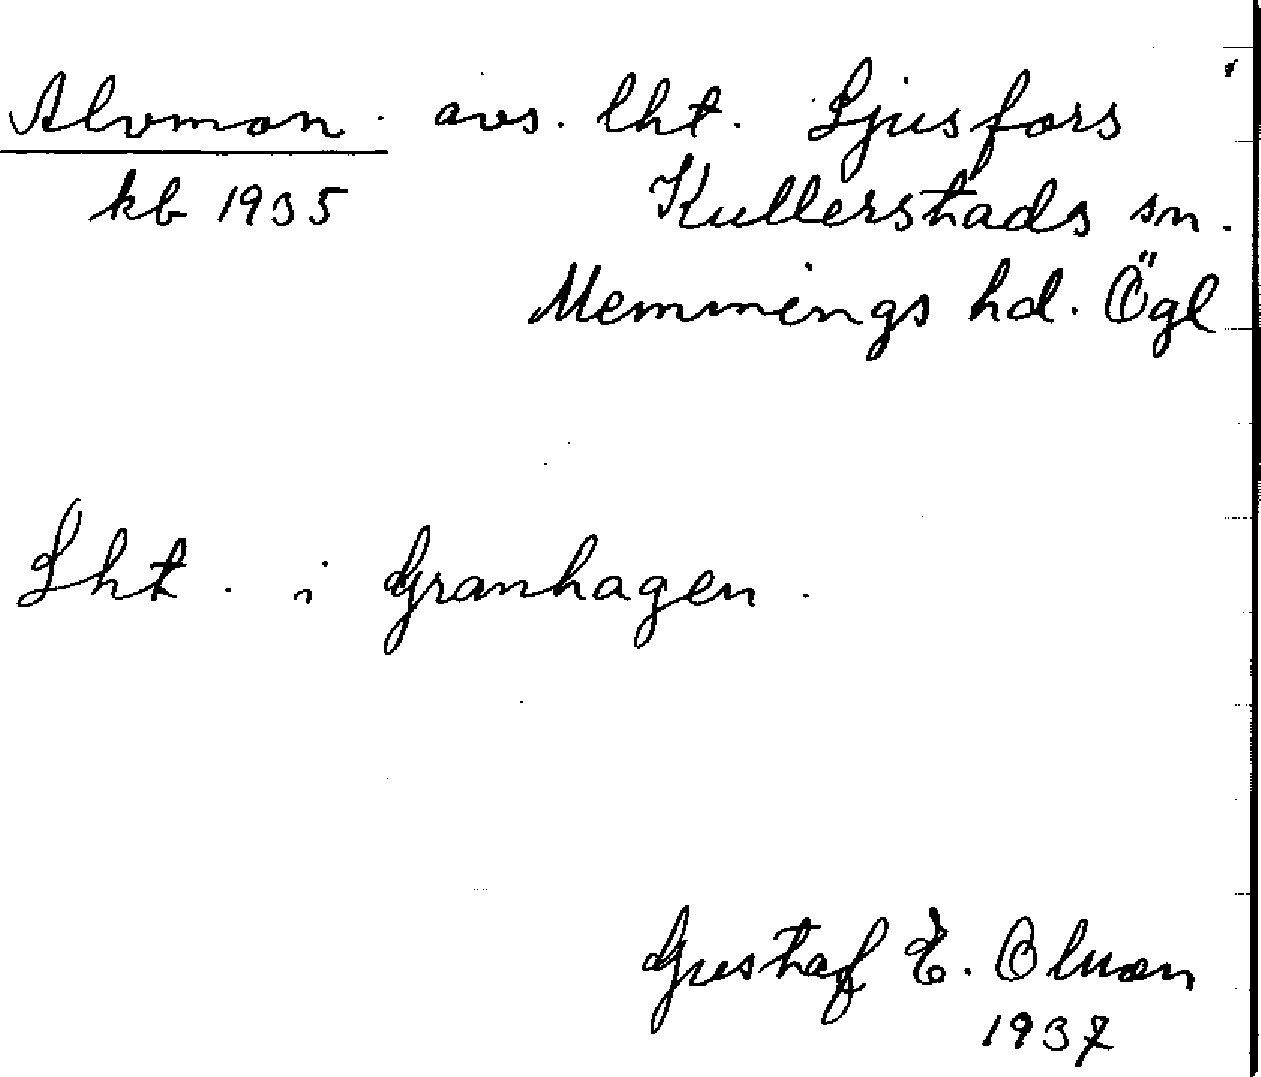 Alvmon. avs. lht. Ljusfors
kb 1935 Kullerstads sn.
Memmings hd. Ögl
Lht. i Granhagen.
Gustaf E. Olsson
1937